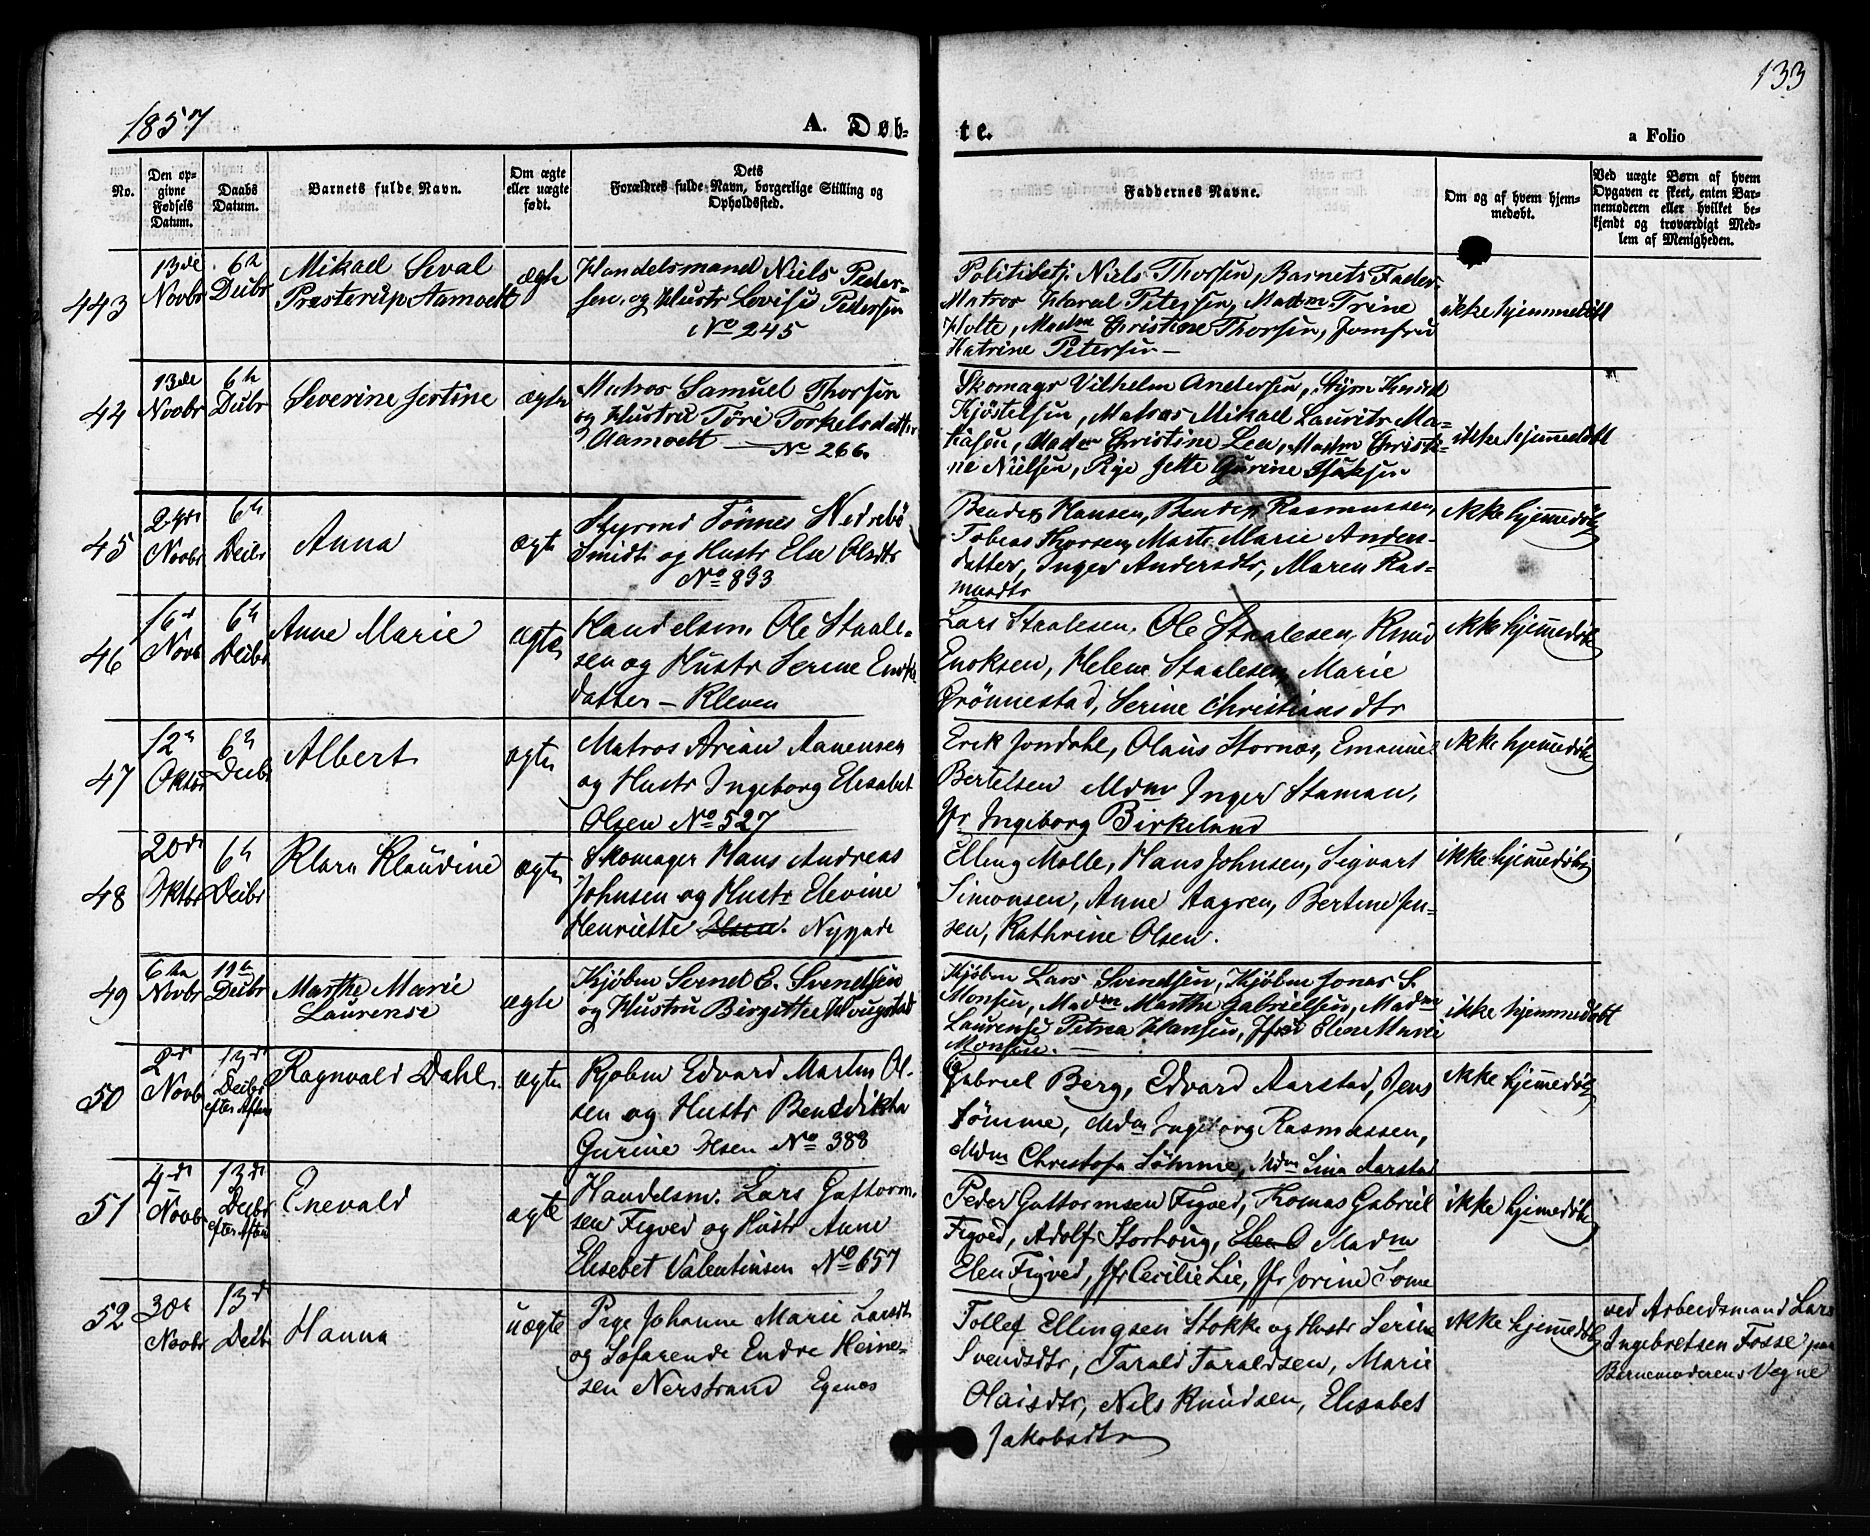 1857
A. Døb-
te.
a Folio
133
No.
Den op-
givne
Fødsels
Datum.
Daabs
Datum.
Barnets fulde Navn.
Om ægte
eller uægte
født.
Dets
Forældres fulde Navn, borgerlige Stilling og
Opholdssted.
Faddernes Navne.
Om og af hvem hjem-
medøbt.
Ved uægte Børn af hvem
Opgaven er skeet, enten Bar-
nemoderen eller hvilket be-
kjendt og troværdigt Med-
lem af Menigheden.
443
13de
Novbr
6te
Decbr
Mikael Seval
Præsterup Aamodt
ægte
Handelsmand Niels Peder-
sen og Hustr Lovise Pedersen
No 245
Politibetj. Niels Thorsen, Barnets Fader,
Matros Haral Petersen, Madm Trine
Holte, Madm Christine Thorsen, Jomfru
Katrine Petersen —
ikke hjemmedøbt
44
13de
Novbr
6te
Decbr
Severine Jertine
ægte
Matros Samuel Thorsen
og Hustru Töri Torkelsdatter
Aamodt — No 266.
Skomagr Vilhelm Andersen,
Kjöstelsen, Matros Mikael Laurits Ma-
tiasen, Madm Christine Lea, Madm Christi-
ne Nielsen, Pige Jette Gurine
ikke hjemmedøbt
45
Novbr
6te
Decbr
Anna
ægte
Styrmd Tönnes Nedrebö
Smidt og Hustr Else Olsdtr
No 893
Bendix Hansen, Bendix Rasmussen,
Tobias Thorsen, Marte Marie Anders-
datter, Inger Andersdtr, Maren Ras-
musdtr
ikke hjemedøbt
46
16de
Novb
6te
Decbr
Anne Marie
ægte
Handelsm. Ole Staale-
sen og Hustr Serine Enoks-
datter — Kleven
Lars Staalesen, Ole Staalesen, Knud
Enoksen, Helene Staalesen, Marie
Grönnestad, Serine Christiansdtr
ikke hjemedøbt
47
12te
Oktbr
6te
Decbr
Albert
ægte
Matros Arian Aanensen
og Hustr Ingeborg Elisabet
Olsen No 527
Erik Jondahl, Olaus Stornæs, Emanuel
Bertelsen Mdm Inger Staman,
Jfr Ingeborg Birkeland
ikke hjemedøbt
48
20de
Oktbr
6te
Decbr
Klara Klaudine
ægte
Skomager Hans Andreas
Johnsen og Hustr Elevine
Henriette Olsen. Nygade
Elling Malle, Hans Johnsen, Sigvart
Simonsen, Anne Aagren, Bertine Jen-
sen, Kathrine Olsen.
ikke hjemedøbt
49
6te
Novbr
11te
Decbr
Marthe Marie
Laurense
ægte
Kjøbm Svend E. Svendsen
og Hustru Birgitte Hougstad
Kjøbm Lars Svendsen, Kjøbm Jonas S.
Monsen, Madm Marthe Gabrielsen, Madm
Laurense Petrea Hansen, Jfru Eline Marie
Monsen. —
ikke hjemmedøbt
50
2de
Novb
13de
Decbr
efter Aften
Ragnvald Dahl
ægte
Kjøbm Edvard Martin Ol-
sen og Hustr Benedikte
Gurine Olsen No 388
Gabriel Berg, Edvard Aarstad, Jens
Sömme, Mdm Ingeborg Rasmussen,
Mdm Christofa Sömme, Mdm Sina Aarstad
ikke hjemedøbt
51
4de
Novbr
13de
Decbr
efter Aften
Enevald
ægte
Handelsm. Lars Guttorm-
sen Figved og Hustr Anne
Elisebet Valentinsen No 657
Peder Guttormsen Figved, Thomas Gabriel
Figved, Adolf Storhoug, Elen O Madm
Elen Figved, Jfr Cecilie Lie, Jfr Jorine Some
ikke hjemedøbt
52
3de
Novbr
13de
Decbr
Hanna
uægte
Pige Johanne Marie Larsdtr
og Söfarende Endre Heine-
sen Nerstrand Egenes
Tollef Ellingsen Stokke og Hustr Serine
Svendsdtr, Tarald Taraldsen, Marie
Olaisdtr, Nils Knudsen, Elisabet
Jakobsdtr
ikke hjemedøbt
ved Arbeidsmand Lars
Ingebretsen Fosse paa
Barnemoderens Vegne